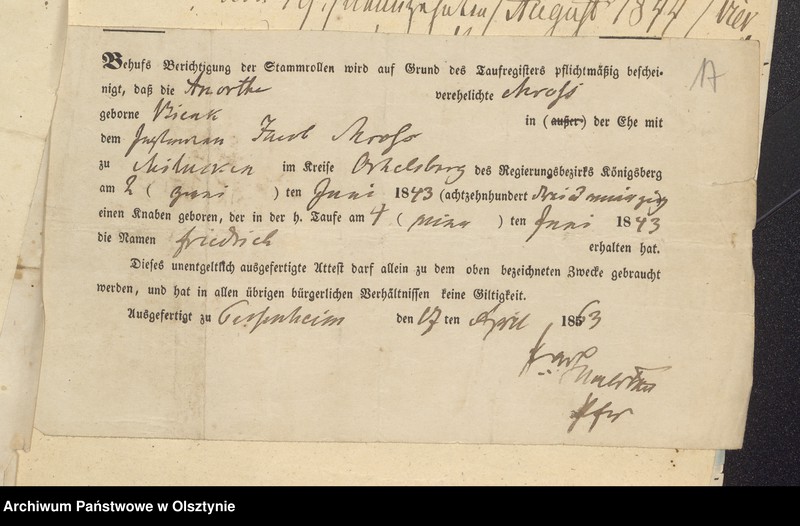 August 1844
17
Behufs Berichtigung der Stammrollen wird auf Grund des Taufregisters pflichtmäßig beschei-
nigt, daß die Anorthe verehelichte Mross
geborne in (außer-) der Ehe mit
dem Instmann Jacob Mross
zu im Kreise Ortelsburg des Regierungsbezirks Königsberg
am 2 ( ) ten Juni 1843 (achtzehnhundert
einen Knaben geboren, der in der h. Taufe am 4 ( ) ten Juni 1843
die Namen Friedrich erhalten hat.
Dieses unentgeltlich ausgefertigte Attest darf allein zu dem oben bezeichneten Zwecke gebraucht
werden, und hat in allen übrigen bürgerlichen Verhältnissen keine Giltigkeit.
Ausgefertigt zu den 17 ten April 1863
Pfr
Archiwum Państwowe w Olsztynie